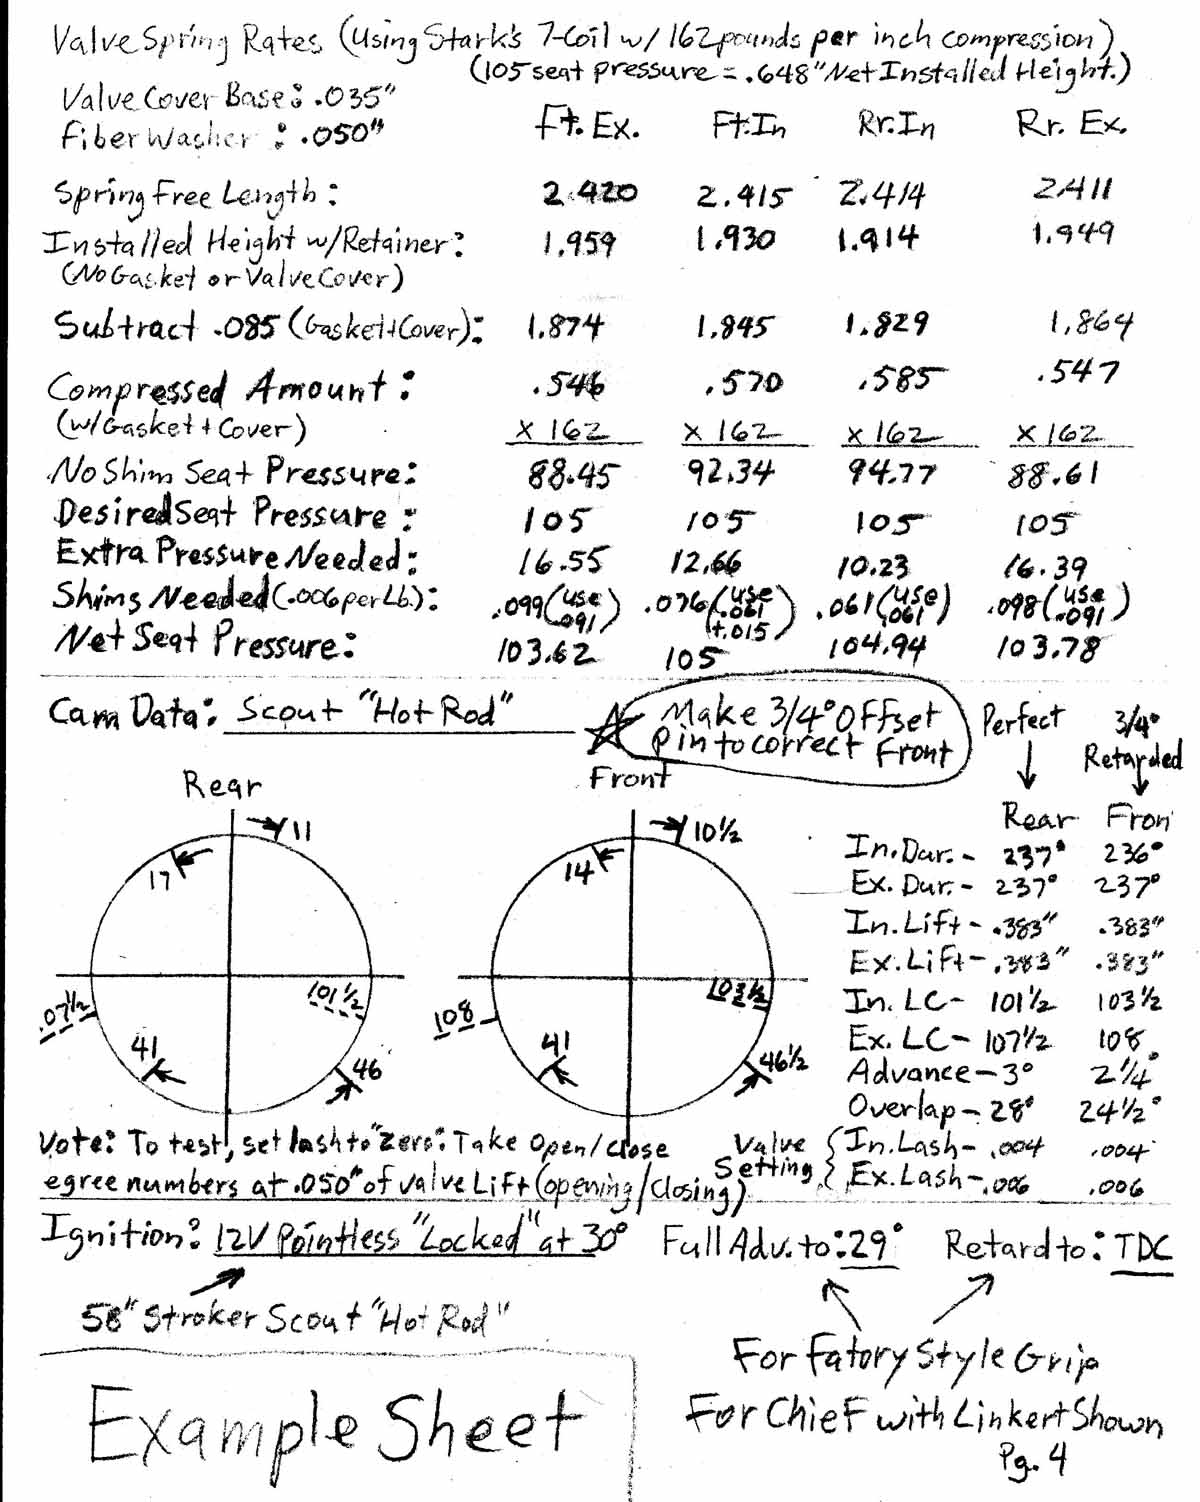 Valve Spring Rates (Using Stark's 7-Coil w/ 162 pounds per inch compression)
(105 seat pressure = .648" Net Installed Height.)
Valve Cover Base: .035"
Fiber Washer : .050"
Ft. Ex. Ft. In Rr. In Rr. Ex.
Spring Free Length: 2.420 2.415 2.414 2.411
Installed Height w/Retainer: 1.959 1.930 1.914 1.949
(No Gasket or Valve Cover)
Subtract .085 (Gasket+Cover): 1.874 1.845 1.829 1.864
Compressed Amount: .546 .570 .585 .547
(w/Gasket + Cover) X 162 X 162 X 162 X 162
No Shim Seat Pressure: 88.45 92.34 94.77 88.61
Desired Seat Pressure: 105 105 105 105
Extra Pressure Needed: 16.55 12.66 10.23 16.39
Shims Needed (.006 per Lb.): .099 (use .091) .076 (use .061 +.015) .061 (use .061) .098 (use .091)
Net Seat Pressure: 103.62 105 104.94 103.78
Cam Data: Scout "Hot Rod"
Make 3/4° Offset
pin to correct Front
Perfect 3/4° Retarded
Rear
11
17
101 1/2
.07 1/2
41
46
Front
10 1/2
14
103 1/2
108
41
46 1/2
Rear Fron
In. Dur. - 237° 236°
Ex. Dur. - 237° 237°
In. Lift - .383" .383"
Ex. Lift - .383" .383"
In. LC - 101 1/2 103 1/2
Ex. LC - 107 1/2 108
Advance - 3° 2 1/4°
Overlap - 28° 24 1/2°
Valve Setting { In. Lash - .004 .004
Ex. Lash - .006 .006
Vote: To test, set lash to "zero". Take Open/Close
egree numbers at .050" of valve Lift (opening/closing)
Ignition: 12V Pointless "Locked" at 30° Full Adv. to: 29° Retard to: TDC
58" Stroker Scout "Hot Rod"
For Fatory Style Grip
For Chief with Linkert Shown
Pg. 4
Example Sheet